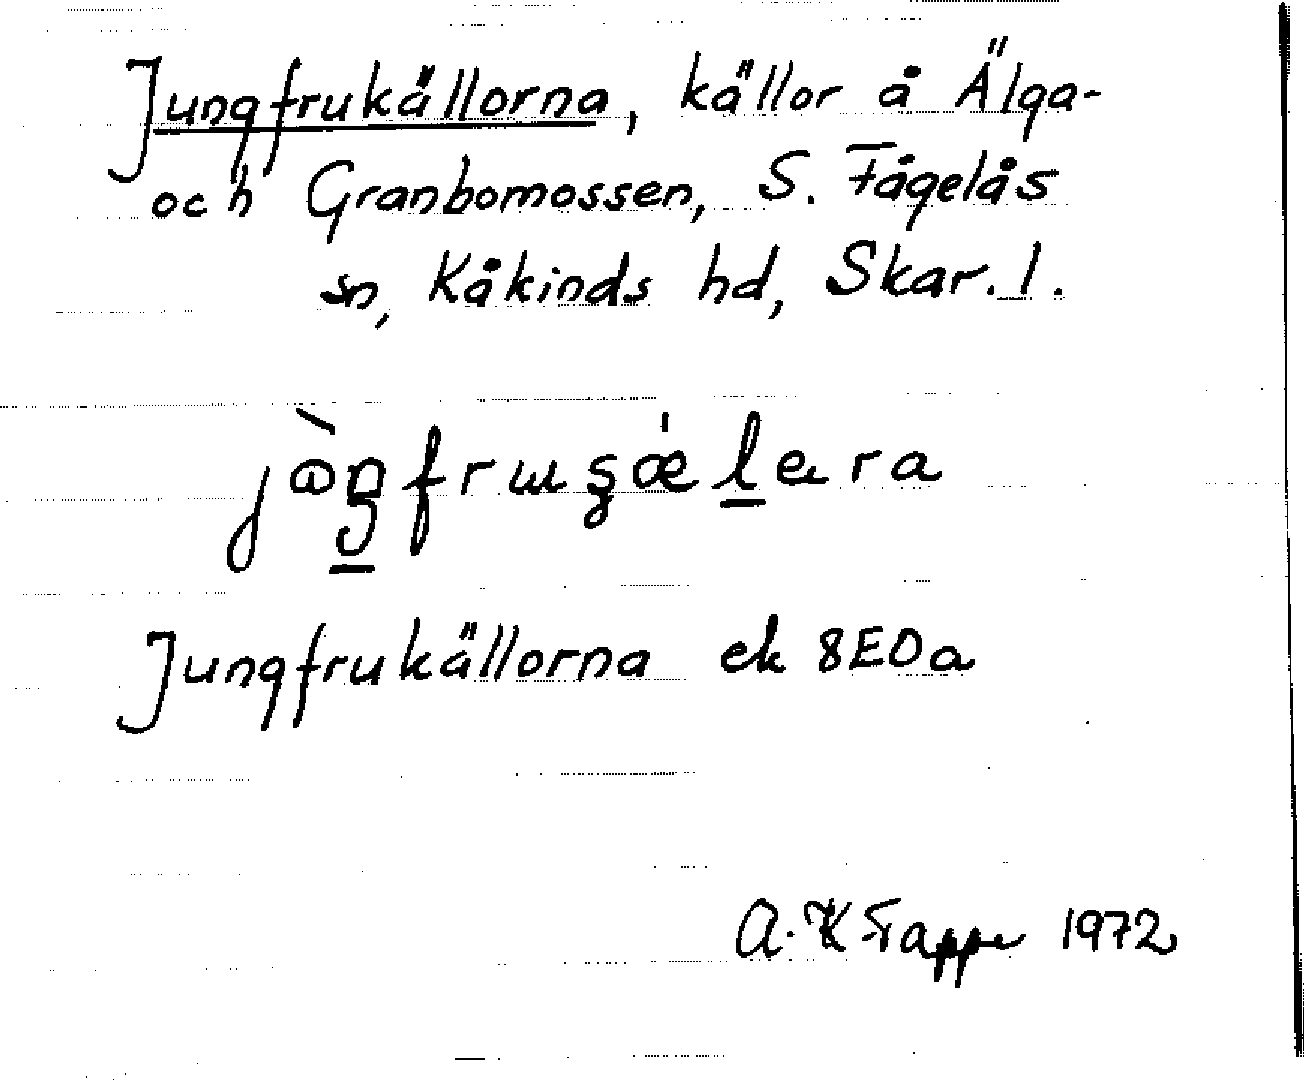 Jungfrukällorna, källor å Älga-
och Granbomossen, S. Fågelås
sn, Kåkinds hd, Skar. l.
Jungfrukällorna ek 8E0a
1972